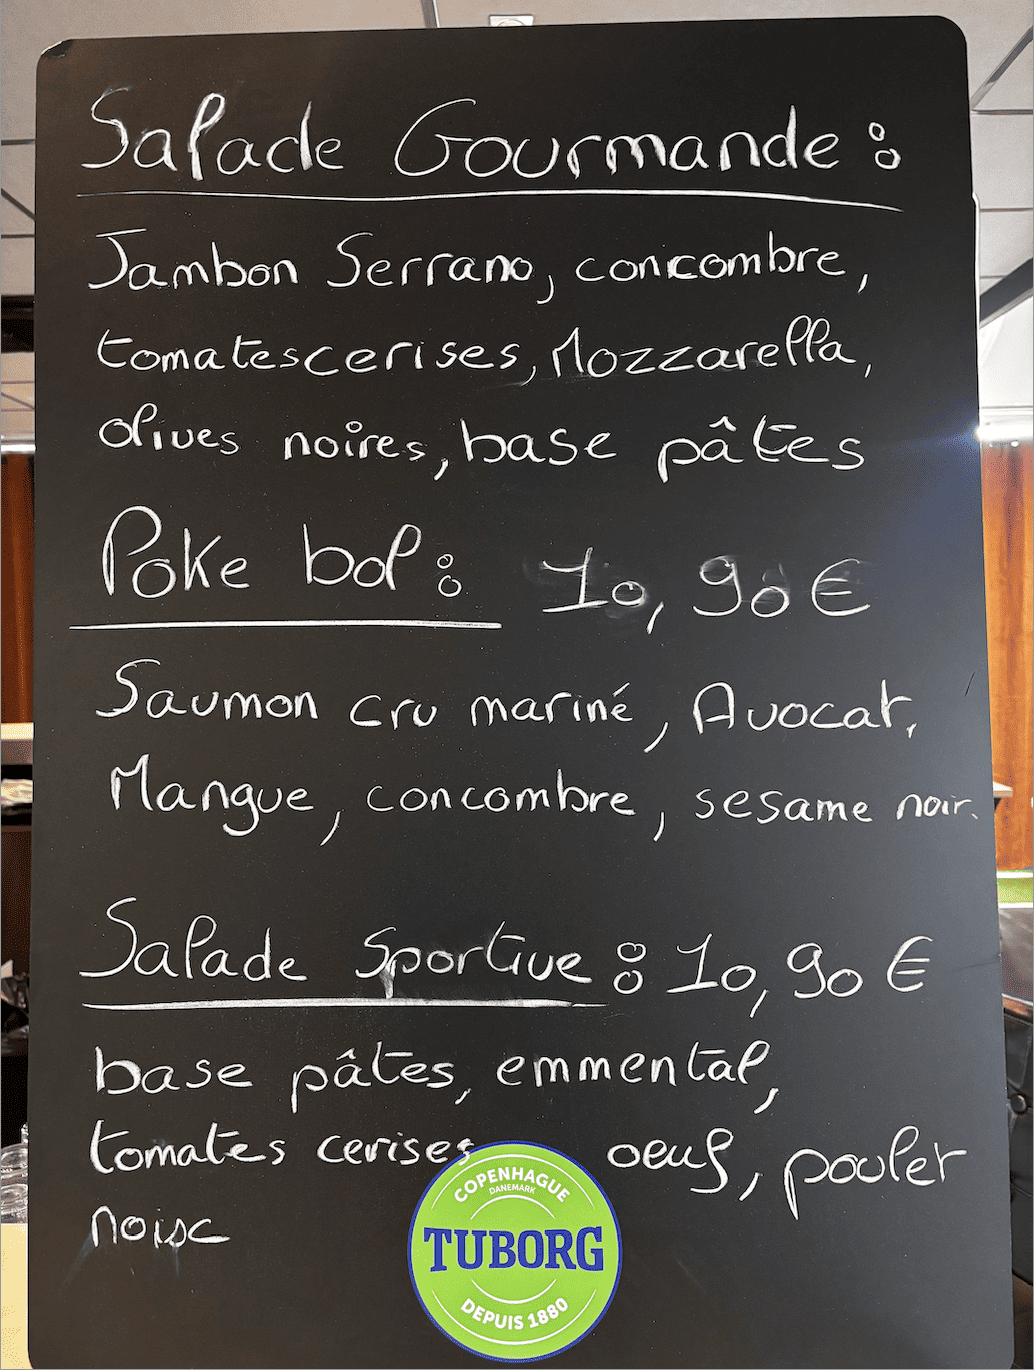 Salade Gourmande :
Jambon Serrano, concombre,
tomates cerises, Mozzarella,
olives noires, base pâtes
Poke bol : 10,90€
Saumon cru mariné, Avocat,
Mangue, concombre, sesame noir.
Salade Sportive : 10,90€
base pâtes, emmental,
tomates cerises oeuf, poulet
COPENHAGUE
DANEMARK
TUBORG
DEPUIS 1880